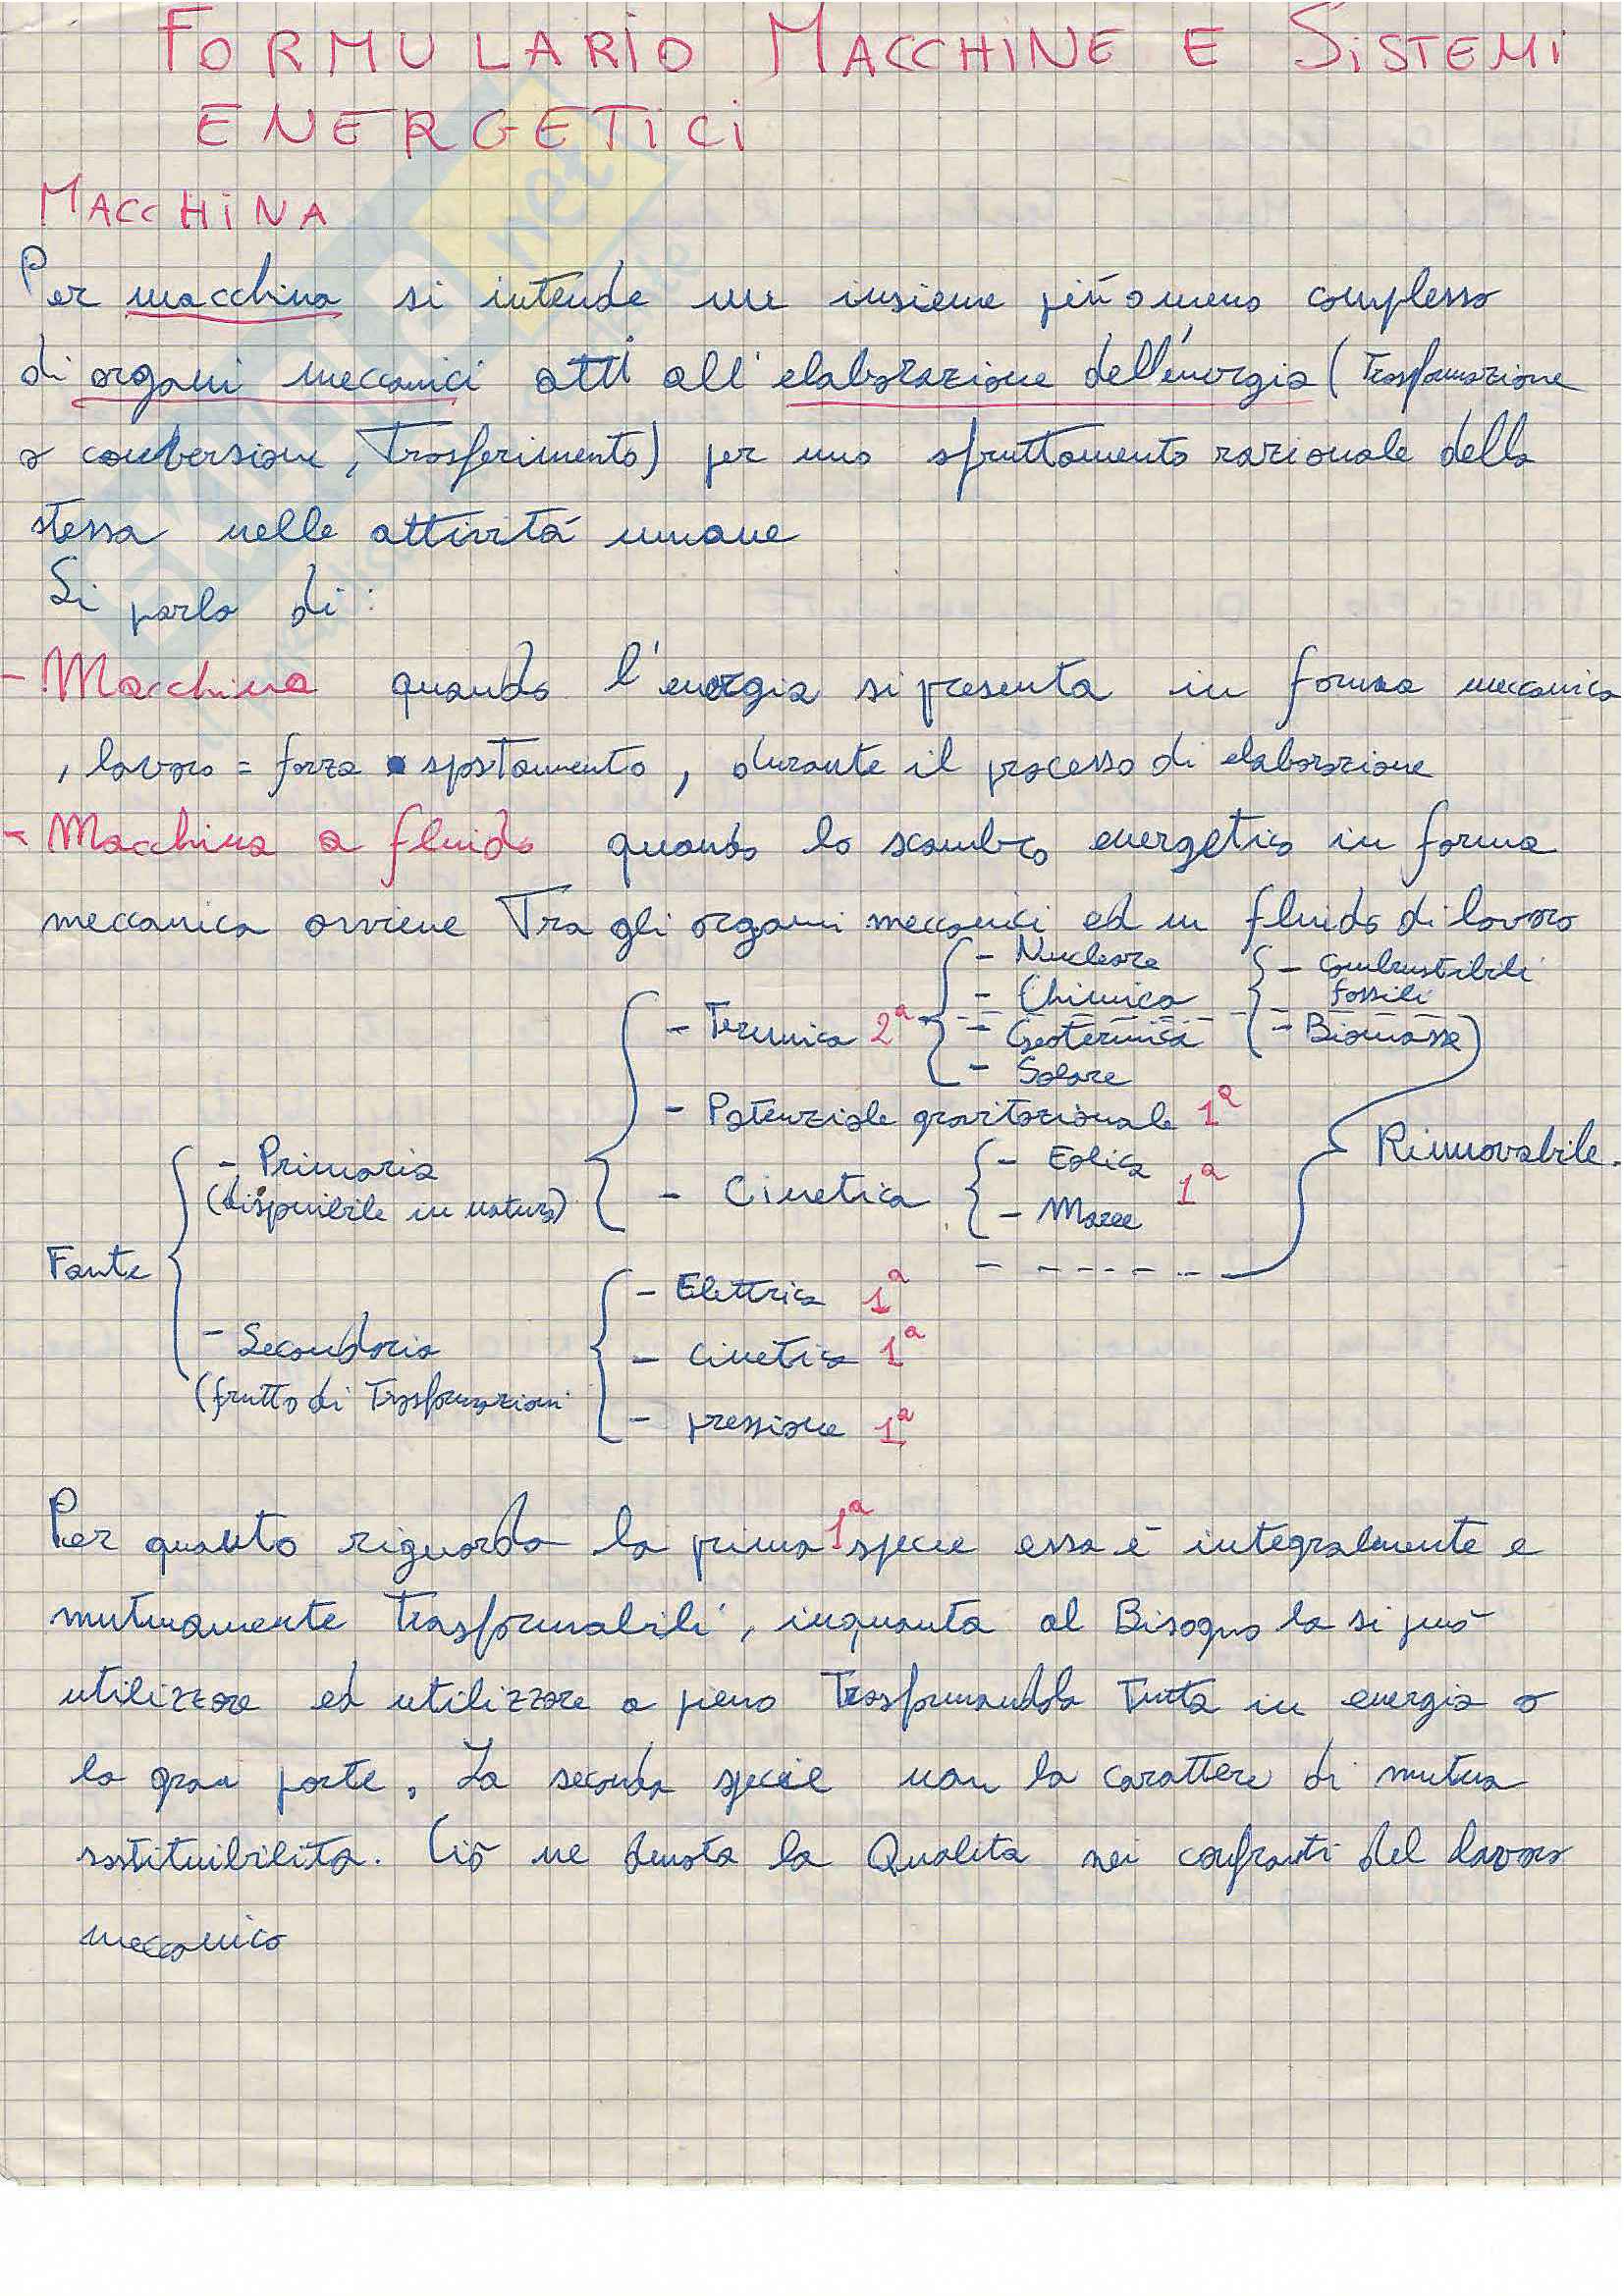 FORMULARIO MACCHINE E SISTEMI
ENERGETICI
MACCHINA
Per macchina si intende un insieme più o meno complesso
di organi meccanici atti all'elaborazione dell'energia (Trasformazione
o conversione, Trasferimento) per uno sfruttamento razionale della
stessa nelle attività umane
Si parla di:
- Macchina quando l'energia si presenta in forma meccanica
, lavoro = forza • spostamento, durante il processo di elaborazione
- Macchina a fluido quando lo scambio energetico in forma
meccanica avviene Tra gli organi meccanici ed un fluido di lavoro
- Nucleare
- Combustibili
fossili
- Chimica
- Termica 2ª
- Geotermica
- Biomasse
- Solare
- Potenziale gravitazionale 1ª
Rinnovabile.
- Primaria
(disponibile in natura)
- Cinetica
- Eolica
1ª
- Maree
Fonte
- Elettrica 1ª
- Secondaria
- Cinetica 1ª
(frutto di Trasformazioni
- pressione 1ª
Per quanto riguarda la prima 1ª specie essa è integralmente e
mutuamente trasformabili, inquanto al Bisogno la si può
utilizzare ed utilizzare a pieno Trasformandola Tutta in energia o
la gran parte. La seconda specie non ha carattere di mutua
sostituibilità. Ciò ne denota la Qualità nei confronti del lavoro
meccanico